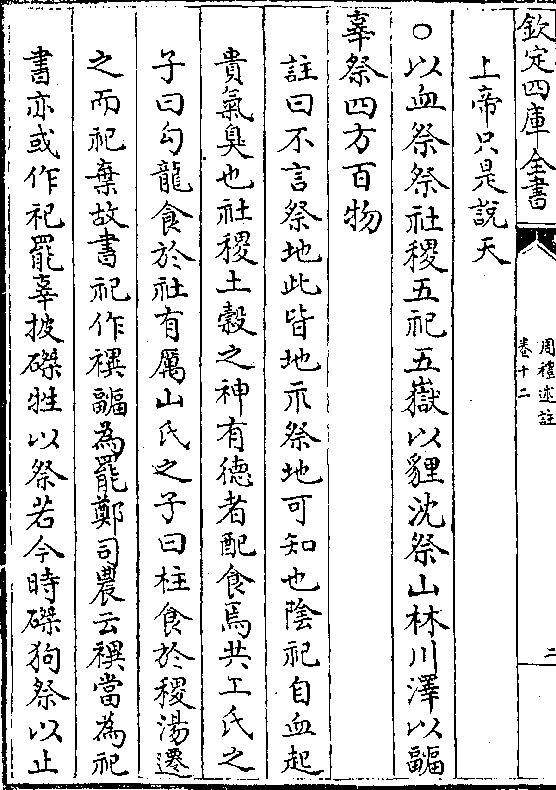 欽定四庫全書
周禮述註
卷十二
二
上帝只是說天
○以血祭祭社稷五祀五嶽以貍沈祭山林川澤以疈
辜祭四方百物
註曰不言祭地此皆地示祭地可知也陰祀自血起
貴氣臭也社稷土穀之神有德者配食焉共工氏之
子曰勾龍食於社有厲山氏之子曰柱食於稷湯遷
之而祀棄故書祀作禩疈為罷鄭司農云禩當為祀
書亦或作祀罷辜披磔牲以祭若今時磔狗祭以止